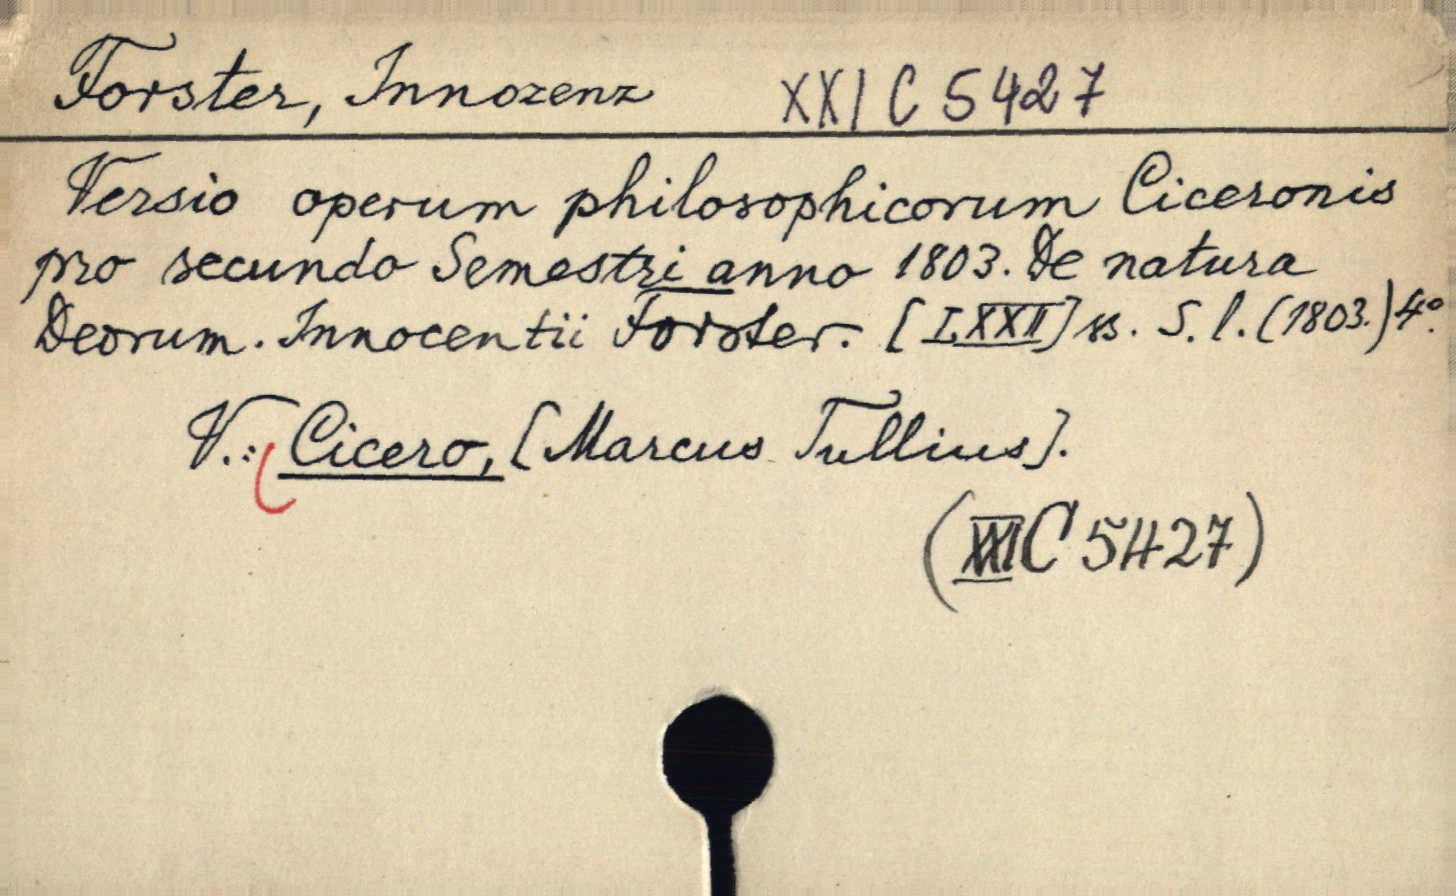 Forster, Innozenz XXI C 5427
Versio operum philosophicorum Ciceronis
pro secundo Semestri anno 1803. De natura
Deorum. Innocentii Forster. [I, XXII] ss. S. l. (1803.) 4°.
V.: Cicero, [Marcus Tullius].
(XXI C 5427)